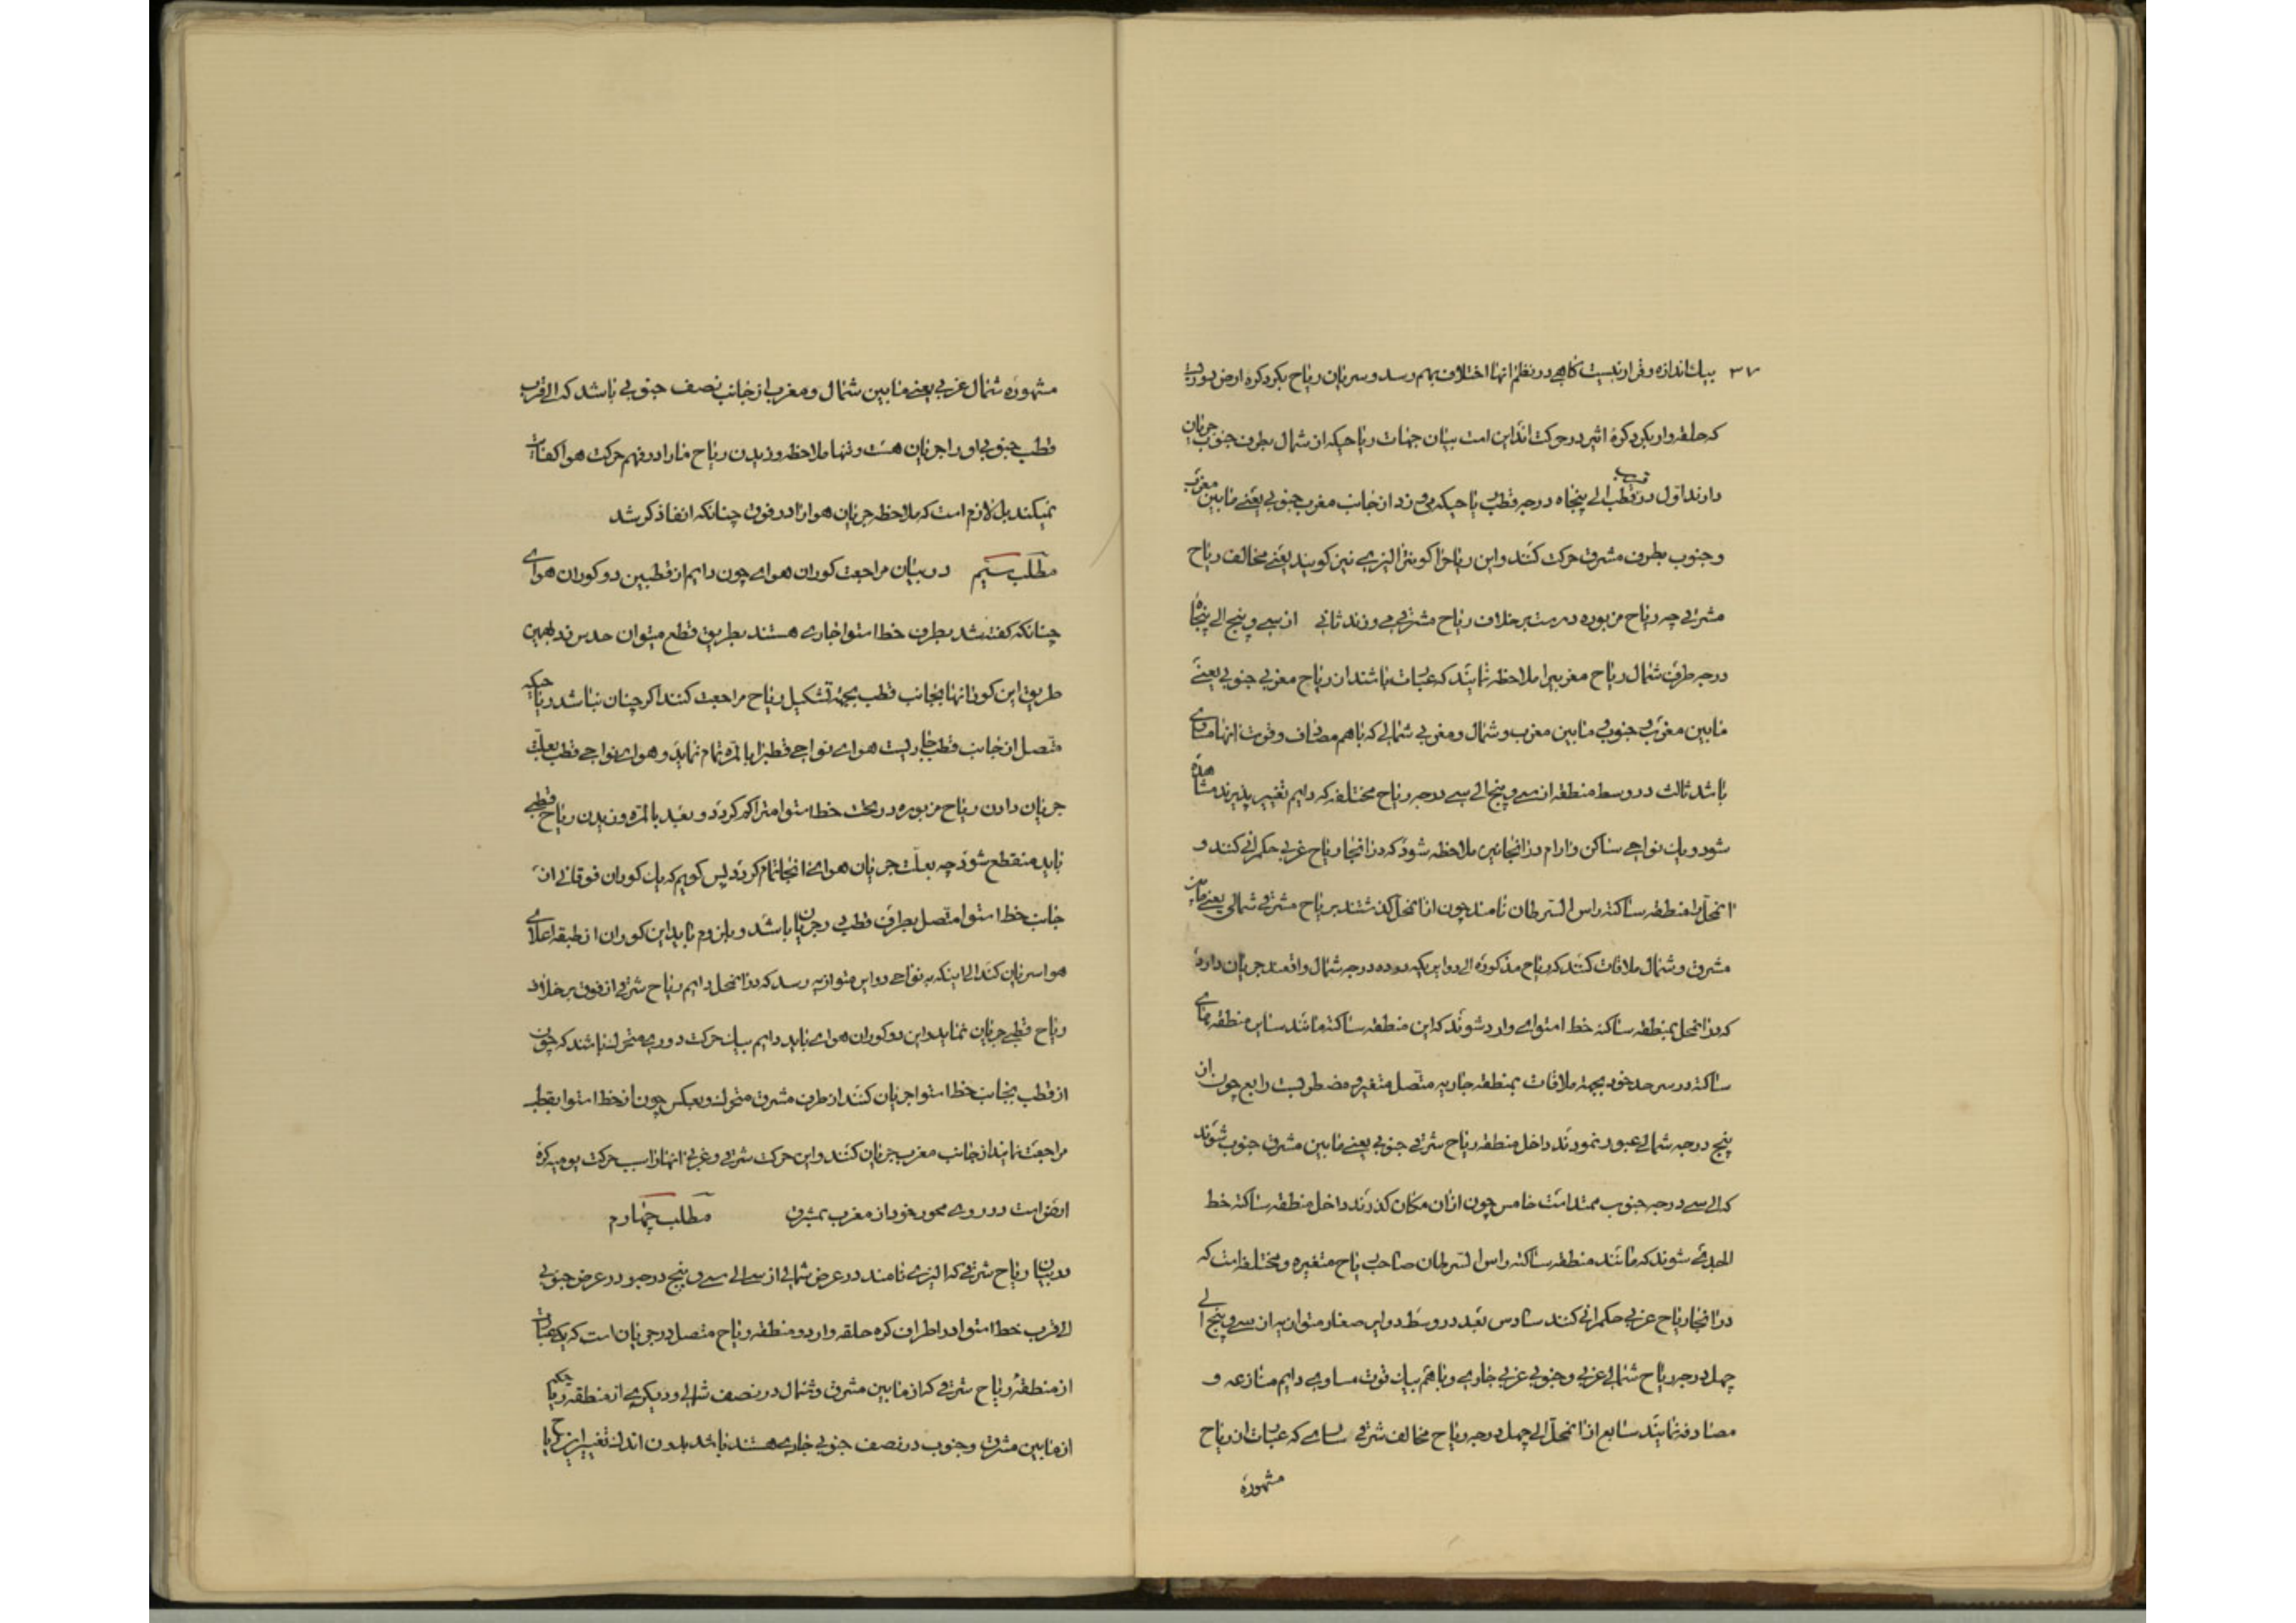 ۳۷ بیک اندازه و قرار نیست کاهی در نظم انها اختلاف بهم رسد و سریان ریاح بکرد کره ارض بدوریست
که حلقه وار بکرد کرهٔ اثیر در حرکت اند این است بیان جهات ریاحیکه از شمال بطرف جنوب جریان
دارند اول در قرب قطب الی پنجاه درجه قطب ریاحیکه می وزد از جانب مغرب جنوبی یعنی مابین مغرب
و جنوب بطرف مشرق حرکت کنند و این ریاح را کونترا الیزی نیز کویند یعنی مخالف ریاح
مشرقی چه ریاح مزبوره درست برخلاف ریاح مشرقی می وزند ثانی از سی و پنج الی پنجاه
درجه طرف شمال ریاح مغربیرا ملاحظه نمایند که عبارت باشند از ریاح مغربی جنوبی یعنی
مابین مغرب جنوبی مابین مغرب و شمال و مغربی شمالی که باهم مصادف و قوت انها مساوی
باشد ثالث در وسط منطقه از سی و پنج الی سی درجه ریاح مختلفه که دایم تغییر پذیرند مشاهده
شود و یک نواحی ساکن و ارام در انجا نیز ملاحظه شود که در انجا ریاح غربی حکمرانی کنند و
انمحل را منطقه ساکنه راس السرطان نامند چون از انمحل کذشتند بریاح مشرقی شمالی یعنی مابین
مشرق و شمال ملاقات کنند که ریاح مذکوره الی دوایر یکه دو ده درجه شمال واقعند جریان دارد
که در انمحل بمنطقه ساکنه خط استوای وارد شوند که این منطقه ساکنه مانند سایر منطقه های
ساکنه در سرحد خود بجهة ملاقات بمنطقه جاریه متصل متغیر و مضطربست رابع چون از
پنج درجه شمالی عبور نمودند داخل منطقه ریاح شرقی جنوبی یعنی مابین مشرق جنوب شوند
که الی سی درجه جنوب ممتد است خامس چون از ان مکان کذرند داخل منطقه ساکنه خط
الجدی شوند که مانند منطقه ساکنه راس السرطان صاحب ریاح متغیره و مختلفه است که
در انجا ریاح غربی حکمرانی کند سادس بعد در وسط دوایر صغار متوازیه از سی و پنج الی
چهل درجه ریاح شمالی غربی و جنوبی غربی جاری و باهم بیک قوت مساوی دایم منازعه و
مصادفه نمایند سابع از انمحل الی چهل درجه ریاح مخالف شرقی که عبارت از ریاح
مشهوره
مشهوره شمال غربی یعنی مابین شمال و مغرب از جانب نصف جنوبی باشد که الی قرب
قطب جنوبی او را جریان هست و تنها ملاحظه وزیدن ریاح مارا در فهم حرکت هوا کفایت
نمیکند بل لازم است که ملاحظه جریان هوا را در فوق چنانکه انفا ذکر شد
مطلب سیم در بیان مراجعت کوران هوای چون دایم از قطبین دو کوران هوای
چنانکه کفته شد بطرف خط استوا جاری هستند بطریق قطع میتوان حدس زد بهمین
طریق این کورانها بجانب قطب بجهة تشکیل ریاح مراجعت کنند اکر چنان نباشد ریاحیکه
متصل از جانب قطب جاریست هوای نواحی قطبرا بالمره تمام نماید و هوای نواحی قطب بعلت
جریان دادن ریاح مزبوره در تحت خط استوا متراکم کردد و بعد بالمره وزیدن ریاح قطبی
باید منقطع شود چه بعلت جریان هوای انجا تمام کردد پس کویم که یک کوران فوقانی از
جانب خط استوا متصل بطرف قطب در جریان باشد و بلزوم باید این کوران از طبقه اعلای
هوا سریان کند الی اینکه به نواحی دوایر متوازیه رسد که در انمحل دایم ریاح شرقی از فوق برخلاف
ریاح قطبی جریان نماید و این دو کوران هوای باید دایم بیک حرکت دوری متحرک باشند که چون
از قطب بجانب خط استوا جریان کنند از طرف مشرق متحرک و بعکس چون از خط استوا بقطب
مراجعت نمایند از جانب مغرب جریان کنند و این حرکت شرقی و غربی انها از سبب حرکت یومیه کرهٔ
ارض است در روی محور خود از مغرب بمشرق مطلب چهارم
در بیان ریاح شرقی که الیزی نامند در عرض شمالی از سی الی سی و پنج درجه و در عرض جنوبی
الی قرب خط استوا در اطراف کره حلقه وار دو منطقه ریاح متصل در جریان است که یکی عبارت
از منطقهٔ ریاح شرقی که از مابین مشرق و شمال در نصف شمالی و دیکری از منطقه ریاحیکه
از مابین مشرق و جنوب در نصف جنوبی جاری هستند باشد بدون اندک تغییر این ریاح